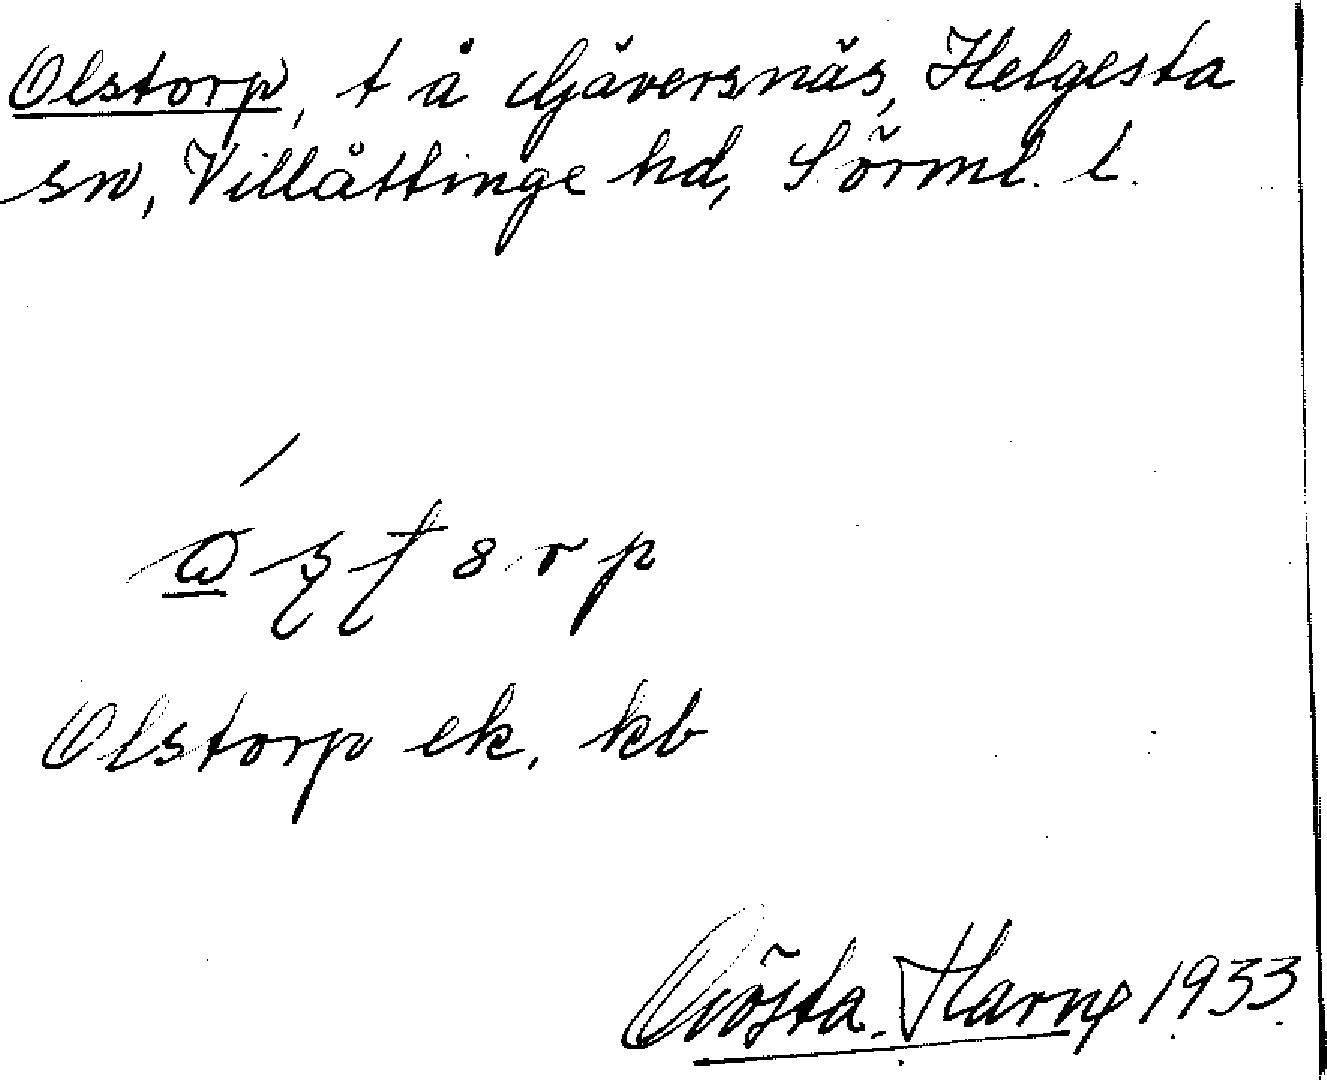 Olstorp, t å Gäversnäs, Helgesta
sn, Villåttinge hd, Sörml. l.
Olstorp ek. kb
Gösta Harng 1933